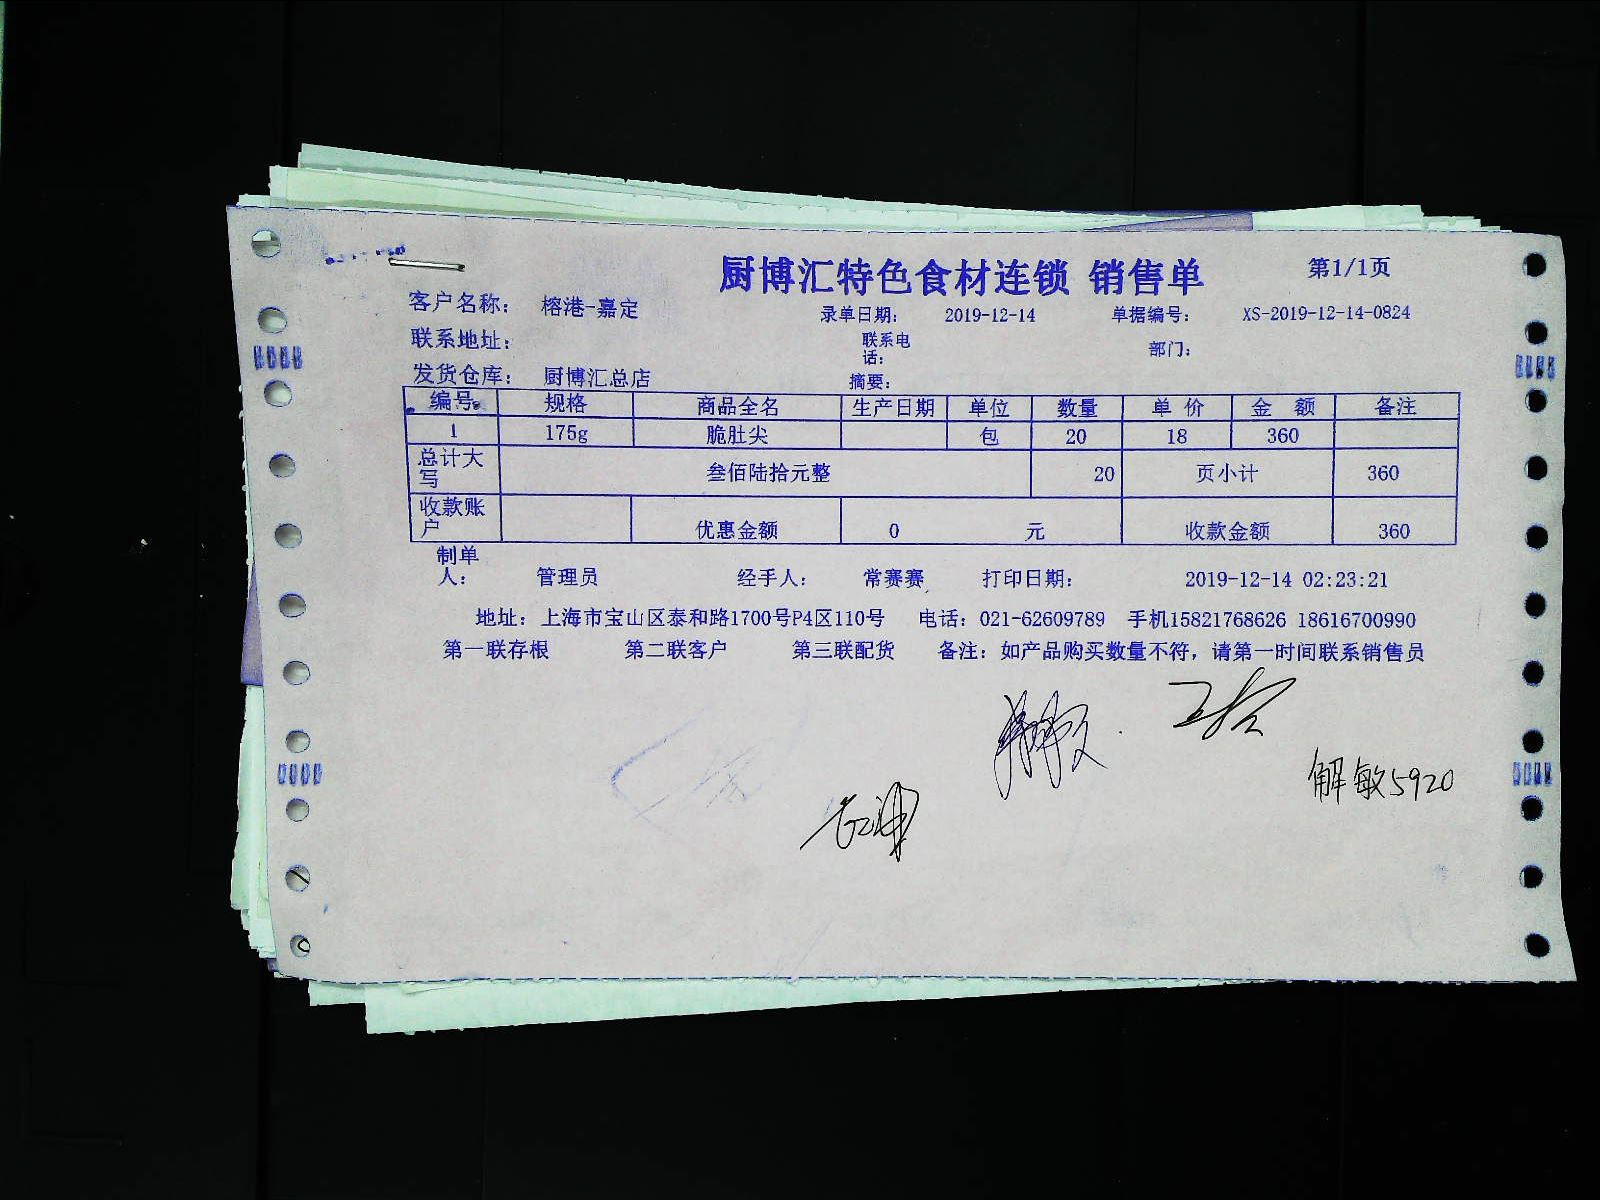 厨博汇特色食材连锁 销售单 第1/1页
客户名称： 榕港-嘉定 录单日期： 2019-12-14 单据编号： XS-2019-12-14-0824
联系地址： 联系电话： 部门：
发货仓库： 厨博汇总店 摘要：
编号 规格 商品全名 生产日期 单位 数量 单 价 金 额 备注
1 175g 脆肚尖 包 20 18 360
总计大写 叁佰陆拾元整 20 页小计 360
收款账户 优惠金额 0 元 收款金额 360
制单人： 管理员 经手人： 常赛赛 打印日期： 2019-12-14 02:23:21
地址：上海市宝山区泰和路1700号P4区110号 电话：021-62609789 手机15821768626 18616700990
第一联存根 第二联客户 第三联配货 备注：如产品购买数量不符，请第一时间联系销售员
解敏5920